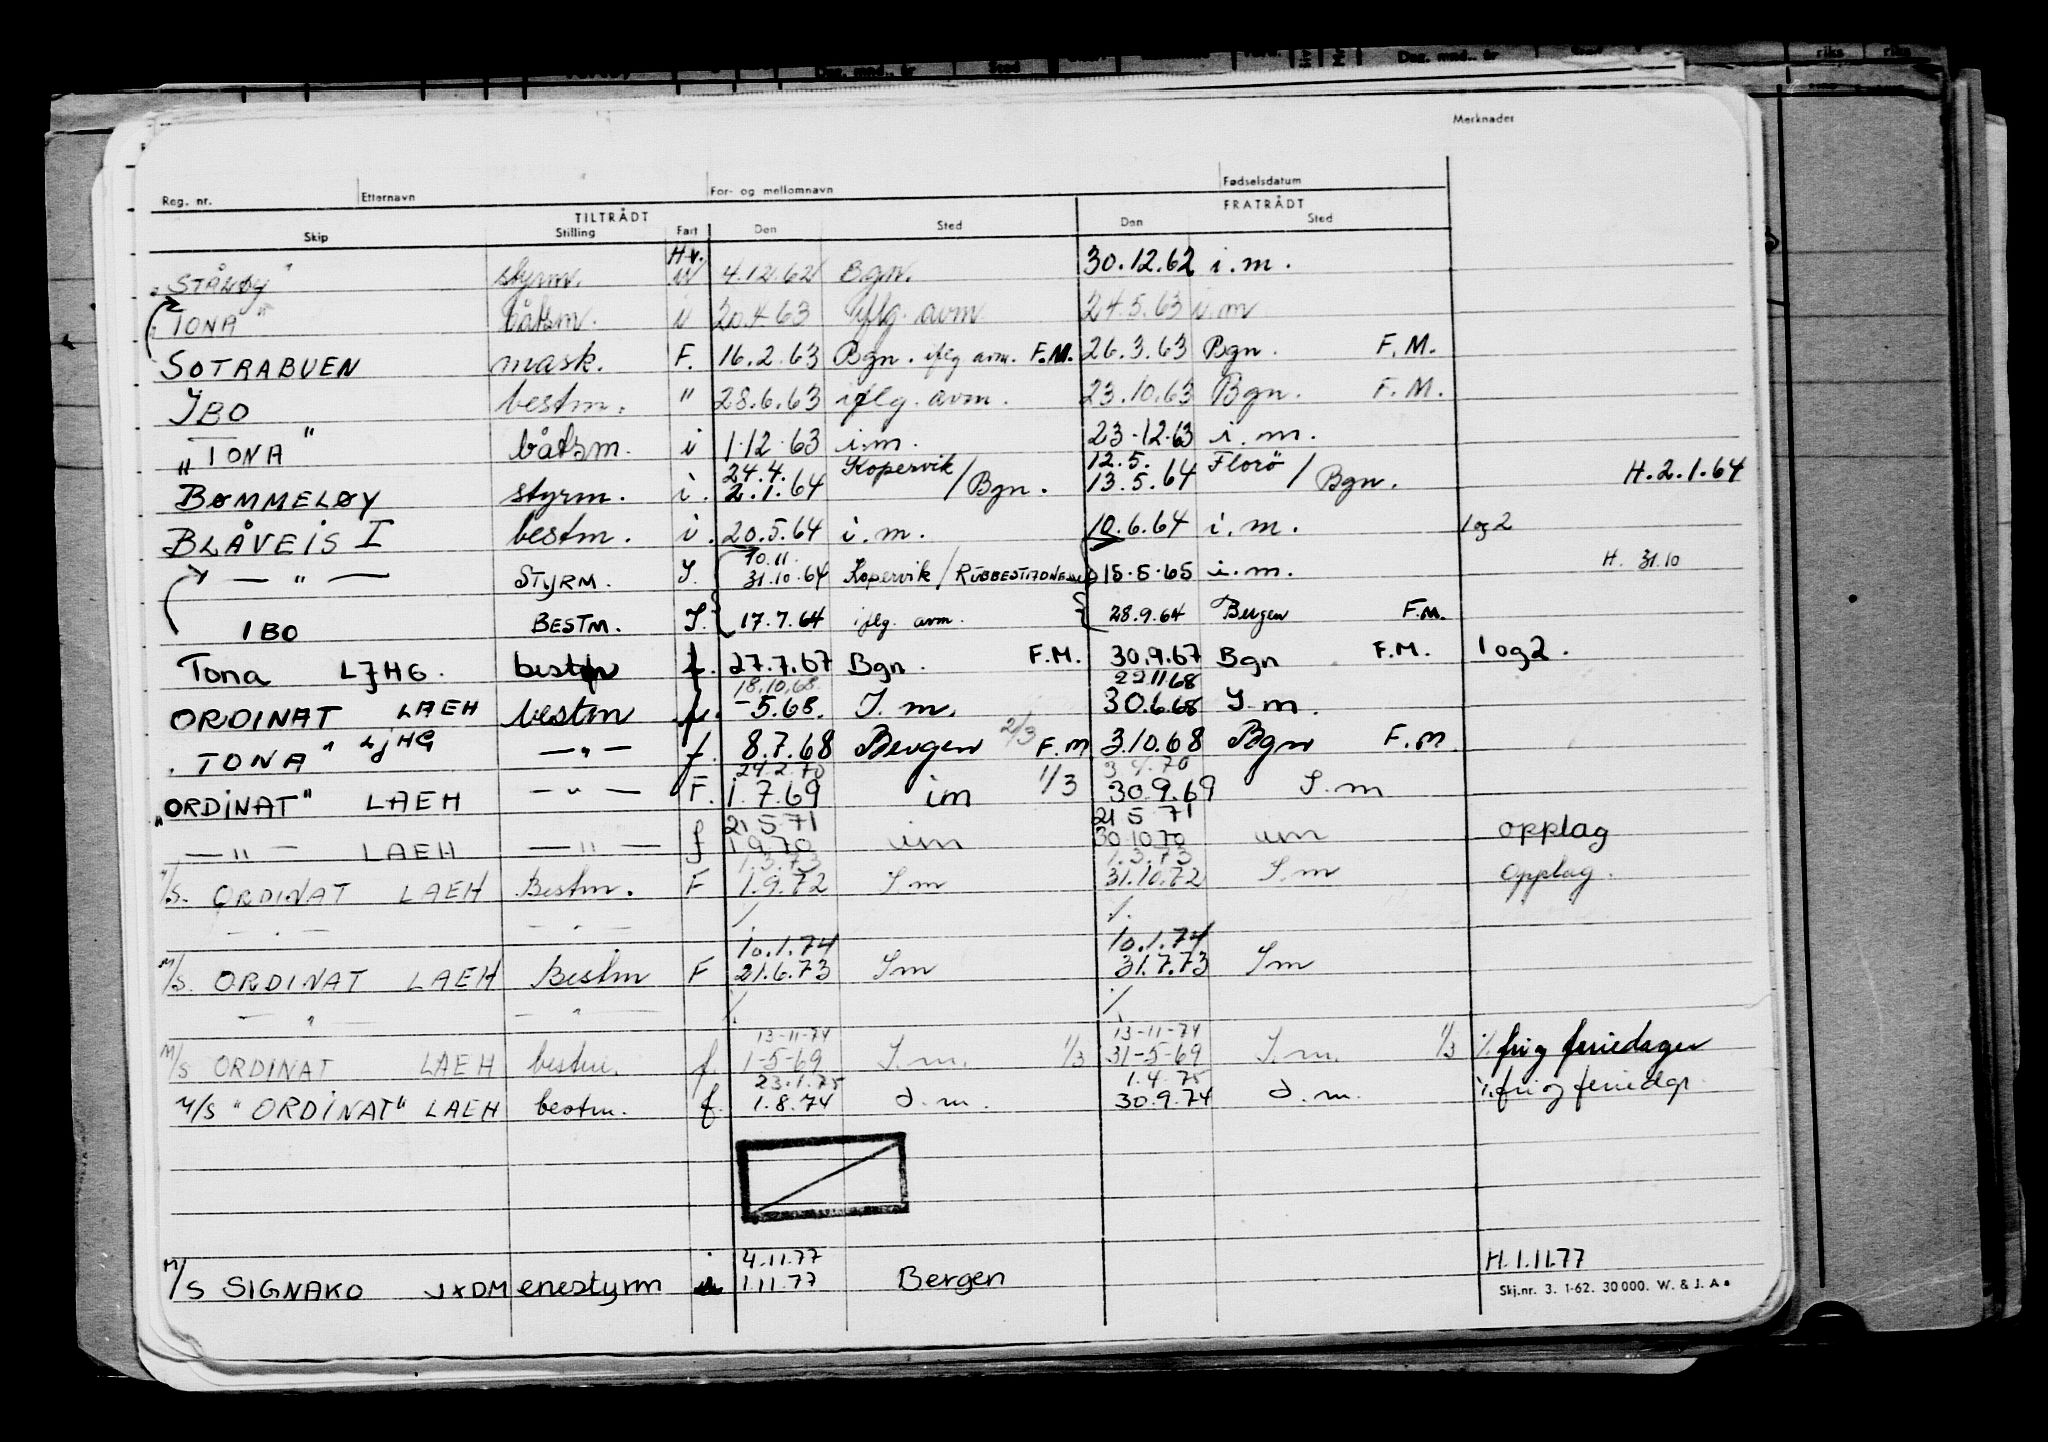 Merknader
Reg. nr. Etternavn For- og mellomnavn Fødselsdatum
TILTRÅDT FRATRÅDT
Skip Stilling Fart Den Sted Den Sted
"STÅLØY" styrm. Hv. 4.12.62 Bgn. 30.12.62 i.m.
"TONA" båtsm. i 20.4.63 iflg. avm 24.5.63 i.m
SOTRABUEN mask. F. 16.2.63 Bgn. iflg avm. F.M. 26.3.63 Bgn. F.M.
IBO bestm. " 28.6.63 iflg. avm. 23.10.63 Bgn. F.M.
"TONA" båtsm. i 1.12.63 i.m. 23.12.63 i.m.
24.4. Kopervik 12.5. Florø
BØMMELØY styrm. i. 2.1.64 / Bgn. 13.5.64 / Bgn. H.2.1.64
BLÅVEIS I bestm. i. 20.5.64 i.m. 10.6.64 i.m. 1og2
10.11.
— " — STYRM. I. 31.10.64 Kopervik / 15.5.65 i.m. H. 31.10
IBO BESTM. I. 17.7.64 iflg. avm. 28.9.64 Bergen F.M.
Tona LJHG. bestm f. 27.7.67 Bgn. F.M. 30.9.67 Bgn F.M. 1og2.
18.10.68 22.11.68
ORDINAT LAEH bestm f. -5.68. I.m. 30.6.68 I.m.
"TONA" LJHG — " — f. 8.7.68 Bergen 2/3 F.M 3.10.68 Bgn F.M.
24.2.70 3.4.70
"ORDINAT" LAEH — " — F. 1.7.69 im 1/3 30.9.69 I.m
21 5 71 21 5 71
— " — LAEH — " — f 1 9 70 im 30 10 70 im opplag
1.3.73 1.3.73
M/S. ORDINAT LAEH Bestm. F 1.9.72 I m 31.10.72 I.m opplag.
— " — — " — %. %.
10.1.74 10.1.74
M/S. ORDINAT LAEH Bestm F 21.6.73 I m 31.7.73 I m
— " — — " — %. %.
13-11-74 13-11-74
M/S ORDINAT LAEH bestm. f. 1-5-69 I.m. 1/3 31-5-69 I.m. 1/3 % fri og feriedager
23.1.75 1.4.75
M/S "ORDINAT" LAEH bestm. f. 1.8.74 I.m. 30.9.74 I.m. %. fri og feriedgr.
4.11.77
M/S SIGNAKO JXDM enestyrm 1.11.77 Bergen H.1.11.77
Skj.nr. 3. 1-62. 30 000. W. & J. A s